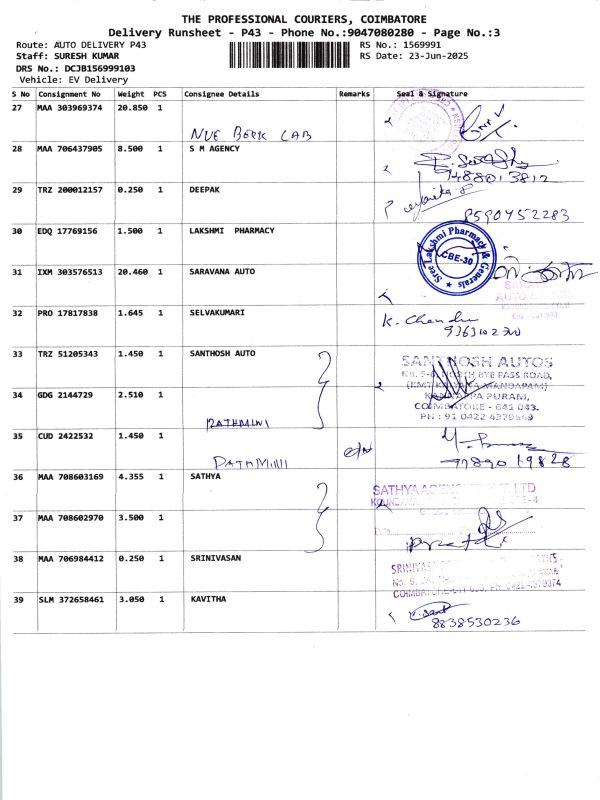 THE PROFESSIONAL COURIERS, COIMBATORE
Delivery Runsheet - P43 - Phone No.:9047080280 - Page No.:3
Route: AUTO DELIVERY P43
RS No.: 1569991
Staff: SURESH KUMAR
RS Date: 23-Jun-2025
DRS No.: DCJB156999103
Vehicle: EV Delivery
S No Consignment No Weight PCS Consignee Details Remarks Seal & Signature
27 MAA 303969374 20.850 1
28 MAA 706437905 8.500 1 S M AGENCY
7488013812
29 TRZ 200012157 0.250 1 DEEPAK
8590452283
30 EDQ 17769156 1.500 1 LAKSHMI PHARMACY
Sree Lakshmi Pharmacy & Generals
CBE-30
31 IXM 303576513 20.460 1 SARAVANA AUTO
32 PRO 17817838 1.645 1 SELVAKUMARI
K. Chandru
33 TRZ 51205343 1.450 1 SANTHOSH AUTO
SANTHOSH AUTOS
BYE PASS ROAD,
34 GDG 2144729 2.510 1
PURAM,
COIMBATORE - 641 043.
PH : 91 0422 4379669
35 CUD 2422532 1.450 1
7789019828
36 MAA 708603169 4.355 1 SATHYA
37 MAA 708602970 3.500 1
38 MAA 706984412 0.250 1 SRINIVASAN
39 SLM 372658461 3.050 1 KAVITHA
8838530236